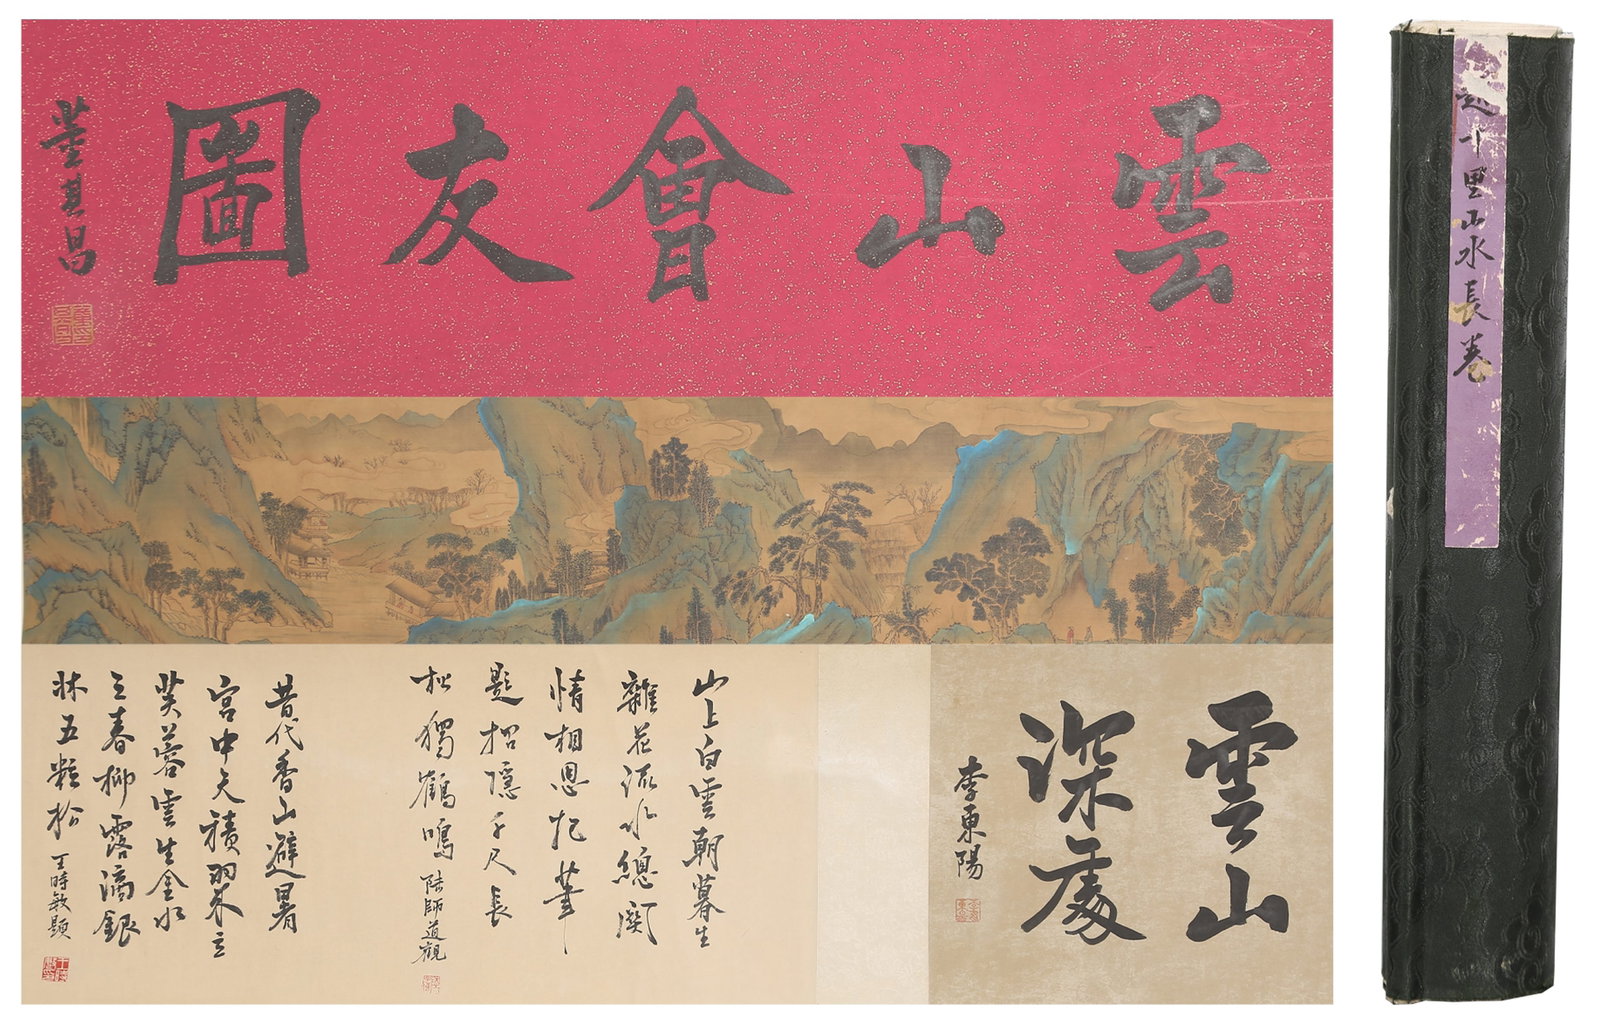 雲山會友圖
董其昌
雲山
深處
李東陽
山上白雲朝暮生
雜花流水總関
情相思把筆
題招隱千尺長
松獨鶴鳴 陸師道觀
昔代香山避暑
宮中天積翠玉
芙蓉雲生金水
三春柳露滴銀
牀五粒松 王時敏題
趙千里山水長卷